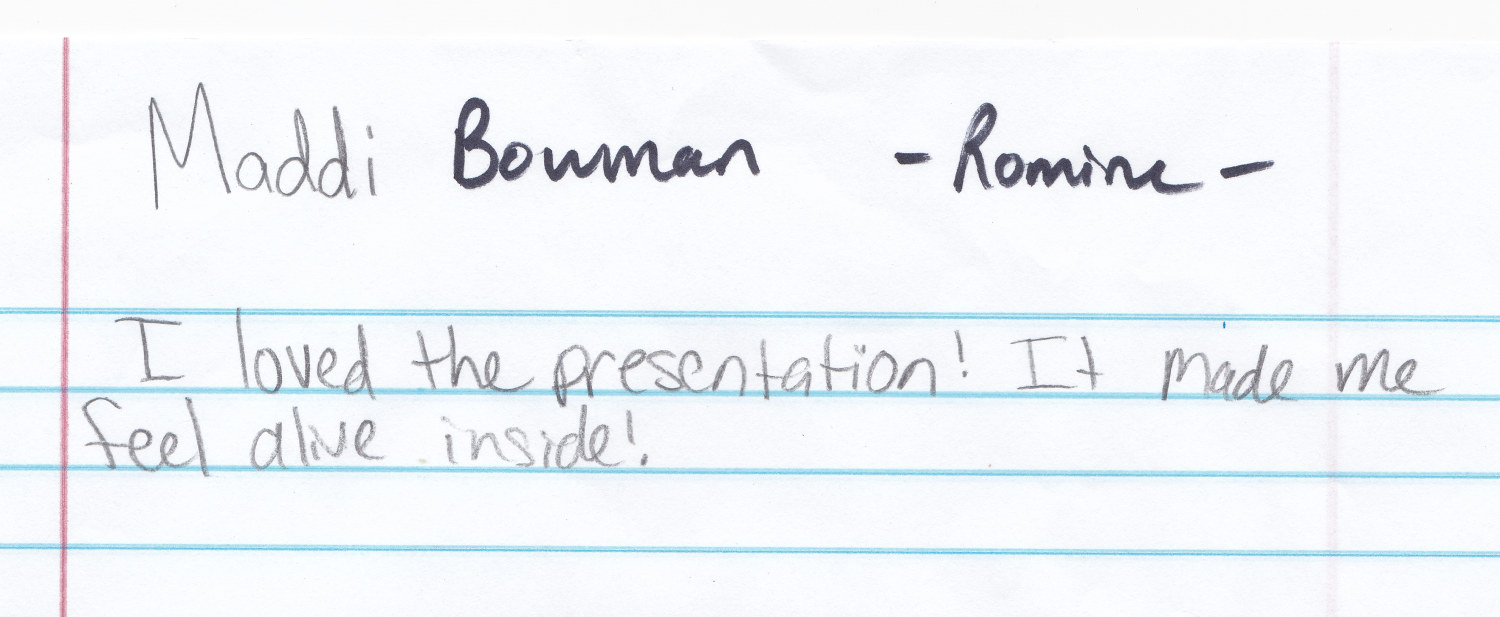 Maddi Bowman - Romine -
I loved the presentation! It made me
feel alive inside!